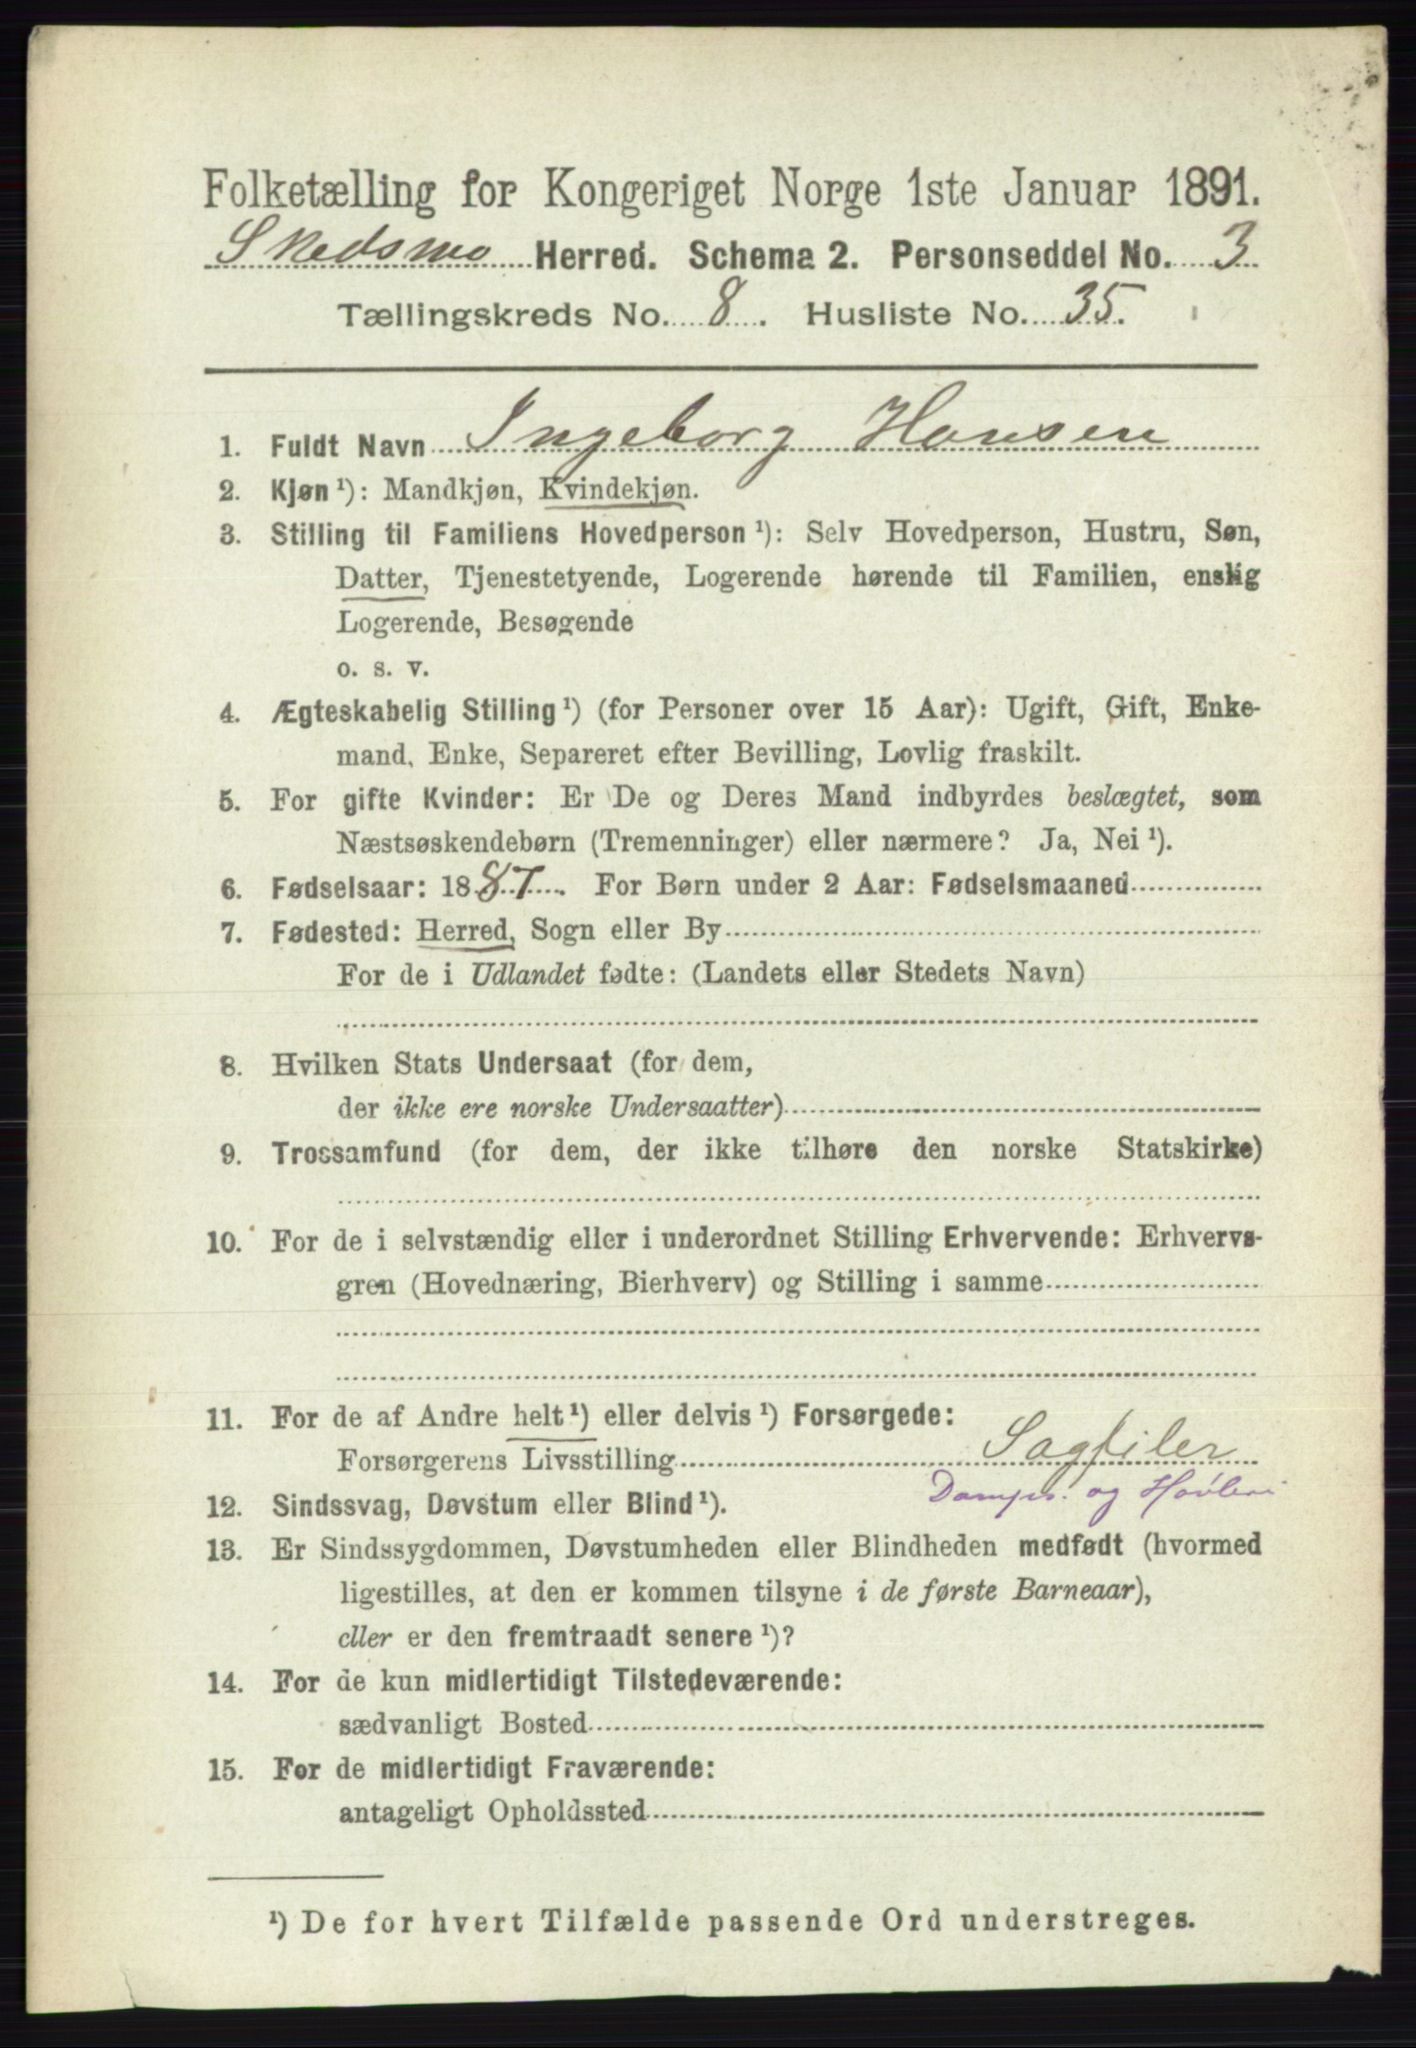 Folketælling for Kongeriget Norge 1ste Januar 1891.
Skedsmo Herred. Schema 2. Personseddel No. 3
Tællingskreds No. 8. Husliste No. 35.
1. Fuldt Navn Ingeborg Hansen
2. Kjøn ¹): Mandkjøn, Kvindekjøn.
3. Stilling til Familiens Hovedperson ¹): Selv Hovedperson, Hustru, Søn,
Datter, Tjenestetyende, Logerende hørende til Familien, enslig
Logerende, Besøgende
o. s. v.
4. Ægteskabelig Stilling ¹) (for Personer over 15 Aar): Ugift, Gift, Enke-
mand, Enke, Separeret efter Bevilling, Lovlig fraskilt.
5. For gifte Kvinder: Er De og Deres Mand indbyrdes beslægtet, som
Næstsøskendebørn (Tremenninger) eller nærmere? Ja, Nei ¹).
6. Fødselsaar: 1887. For Børn under 2 Aar: Fødselsmaaned
7. Fødested: Herred, Sogn eller By
For de i Udlandet fødte: (Landets eller Stedets Navn)
8. Hvilken Stats Undersaat (for dem,
der ikke ere norske Undersaatter)
9. Trossamfund (for dem, der ikke tilhøre den norske Statskirke)
10. For de i selvstændig eller i underordnet Stilling Erhvervende: Erhvervs-
gren (Hovednæring, Bierhverv) og Stilling i samme
11. For de af Andre helt ¹) eller delvis ¹) Forsørgede:
Forsørgerens Livsstilling Sagfiler
12. Sindssvag, Døvstum eller Blind ¹). og Høvleri
13. Er Sindssygdommen, Døvstumheden eller Blindheden medfødt (hvormed
ligestilles, at den er kommen tilsyne i de første Barneaar),
eller er den fremtraadt senere ¹)?
14. For de kun midlertidigt Tilstedeværende:
sædvanligt Bosted
15. For de midlertidigt Fraværende:
antageligt Opholdssted
¹) De for hvert Tilfælde passende Ord understreges.